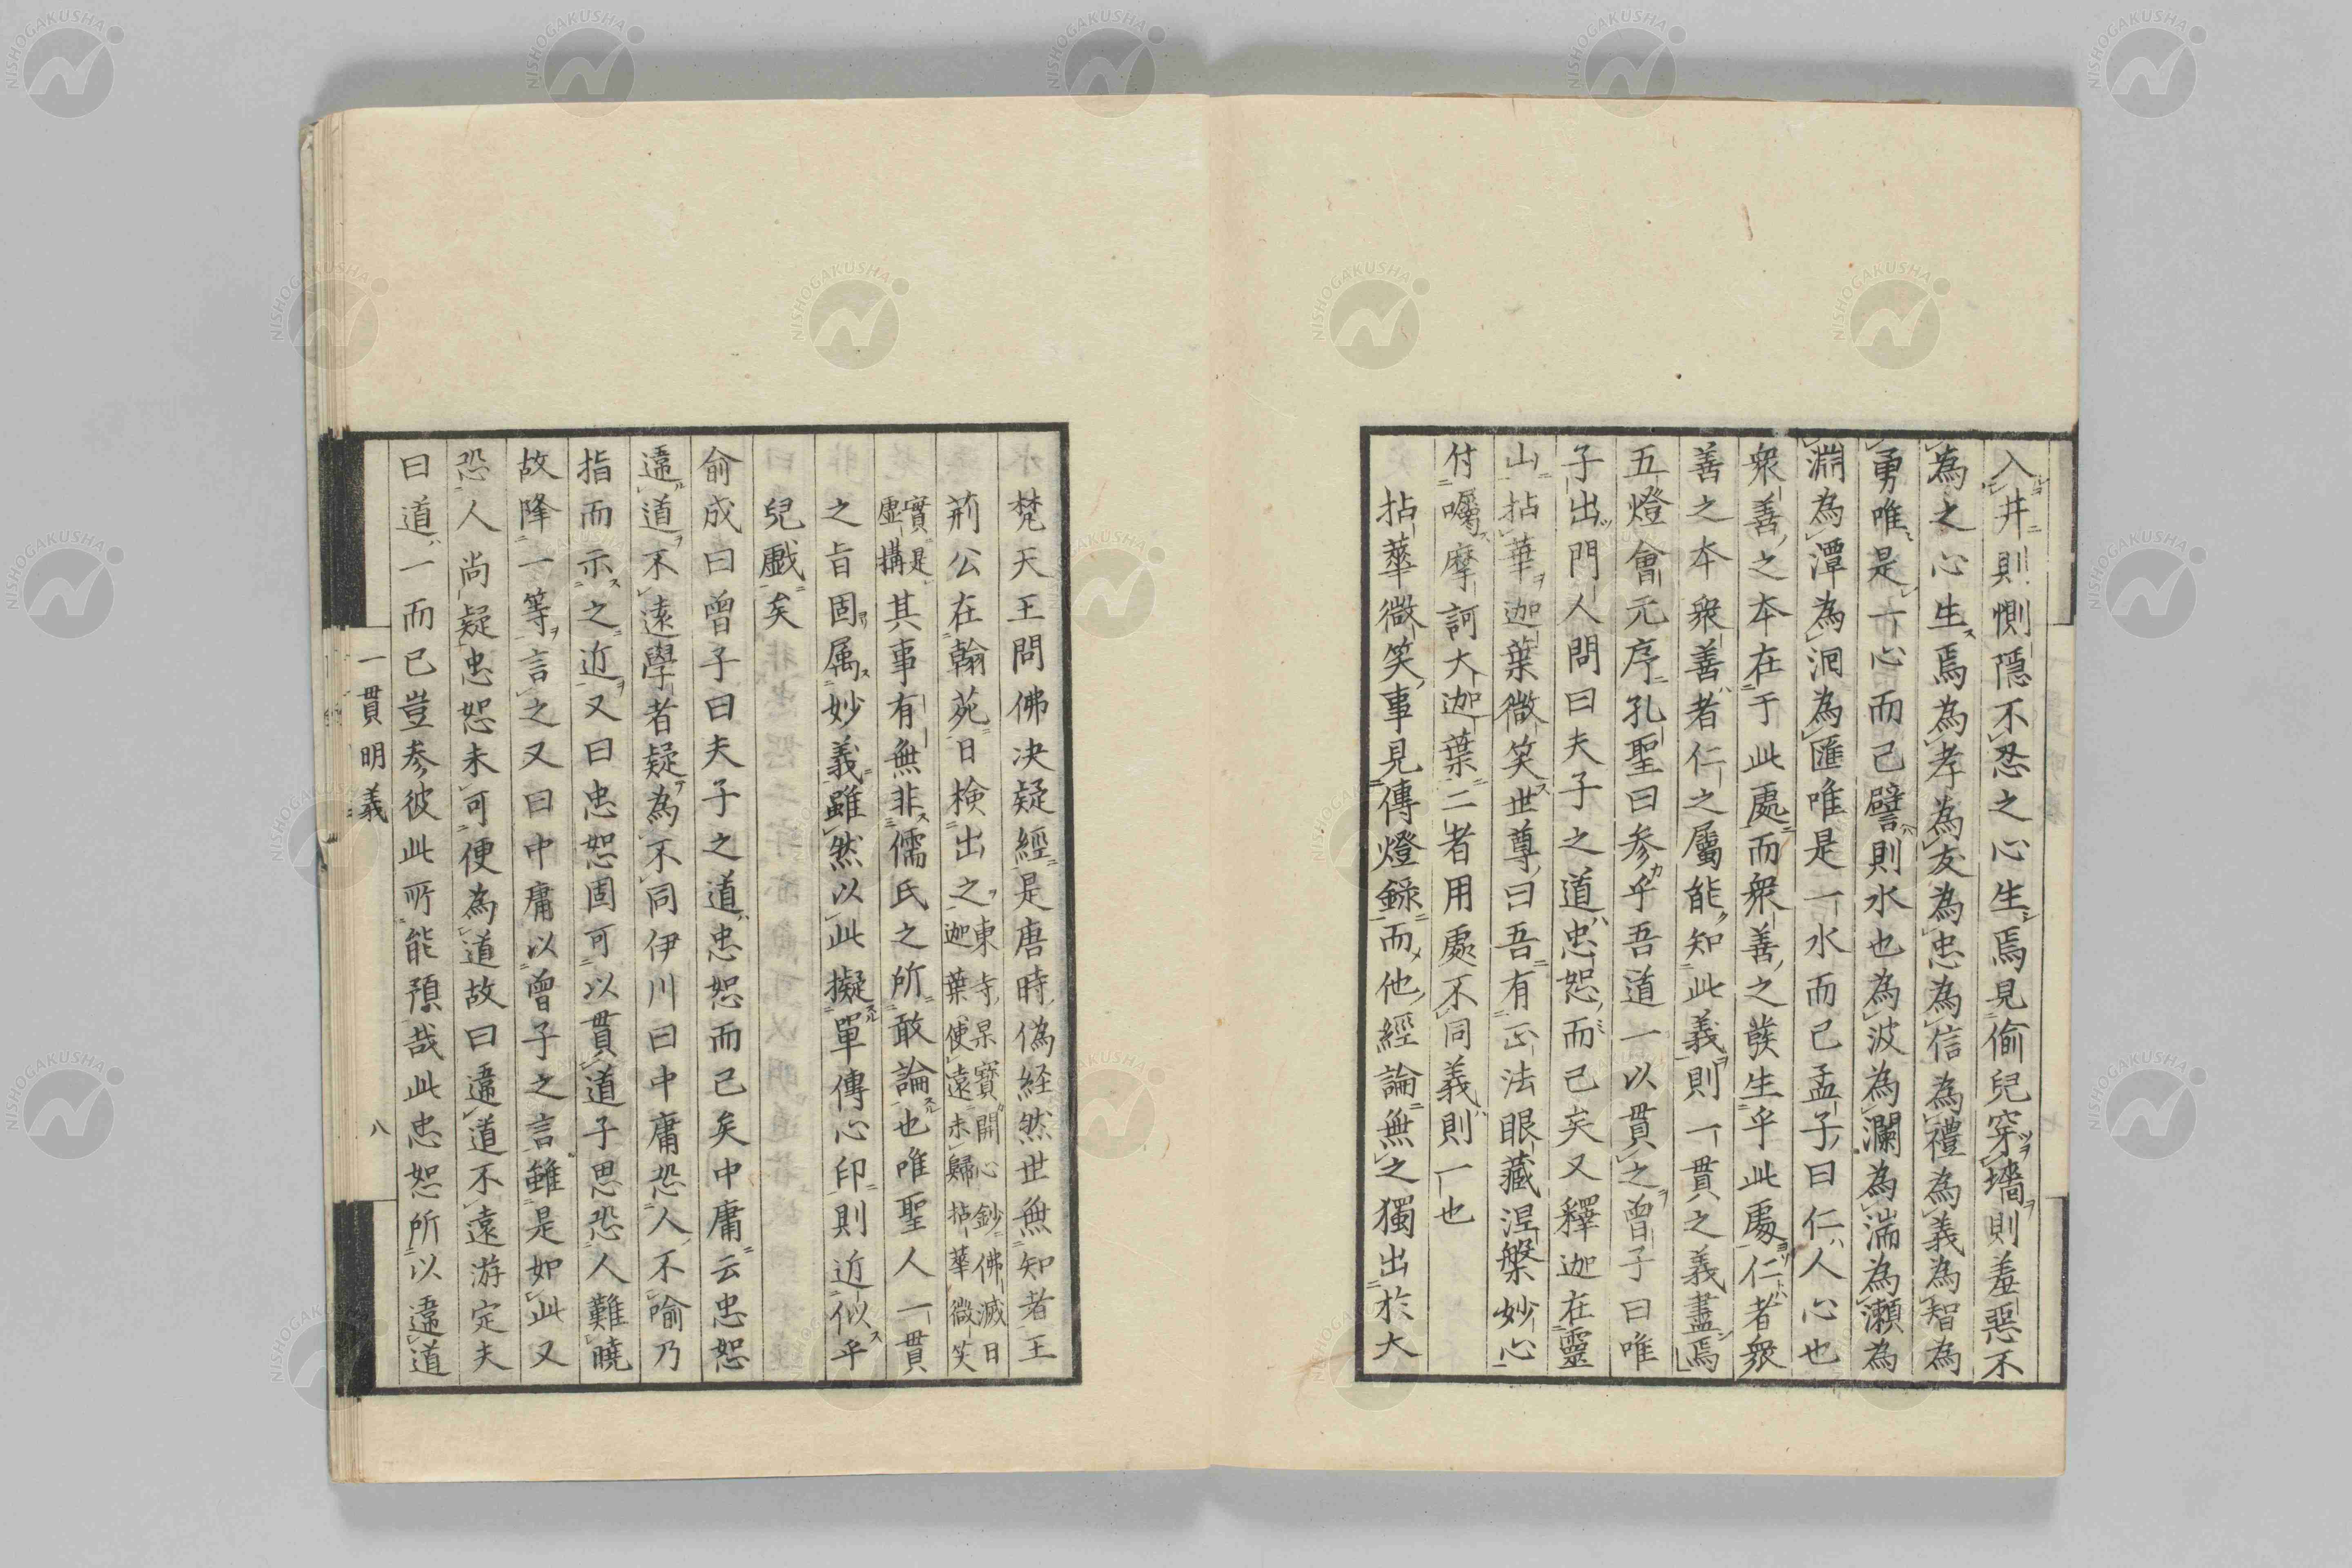 入井則惻隱不忍之心生焉見偷兒穿墻則羞惡不
為之心生焉為孝為友為忠為信為禮為義為智為
勇唯是一心而已譬則水也為波為瀾為湍為瀬為
淵為潭為洄為匯唯是一水而已孟子曰仁人心也
衆善之本在于此處而衆善之發生乎此處仁者衆
善之本衆善者仁之屬能知此義則一貫之義盡焉
五燈會元序孔聖曰参乎吾道一以貫之曾子曰唯
子出門人問曰夫子之道忠恕而已矣又釋迦在靈
山拈華迦葉微笑世尊曰吾有正法眼藏涅槃妙心
付囑摩訶大迦葉二者用處不同義則一也
拈華微笑事見傳燈録而他經論無之獨出於大
梵天王問佛決疑經是唐時偽経然世無知者王
荊公在翰苑日検出之東寺杲寳開心鈔佛滅日
迦葉使遠未歸拈華微笑
實是
虚搆其事有無非儒氏之所敢論也唯聖人一貫
之旨固属妙義雖然以此擬單傳心印則近似乎
兒戲矣
俞成曰曾子曰夫子之道忠恕而已矣中庸云忠恕
違道不遠學者疑為不同伊川曰中庸恐人不喻乃
指而示之近又曰忠恕固可以貫道子思恐人難曉
故降一等言之又曰中庸以曾子之言雖是如此又
恐人尚疑忠恕未可便為道故曰違道不遠游定夫
曰道一而已豈参彼此所能預哉此忠恕所以違道
一貫明義
八
NISHOGAKUSHA